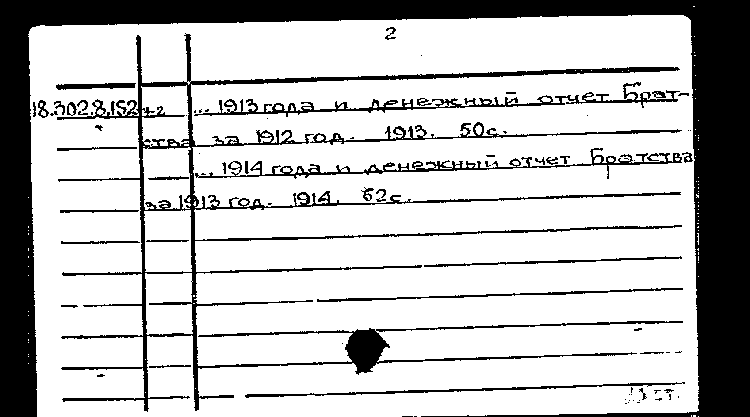 2
18.302.8.152 +2 ... 1913 года и денежный отчет Брат-
ства за 1912 год. 1913. 50с.
... 1914 года и денежный отчет Братства
за 1913 год. 1914. 62с.